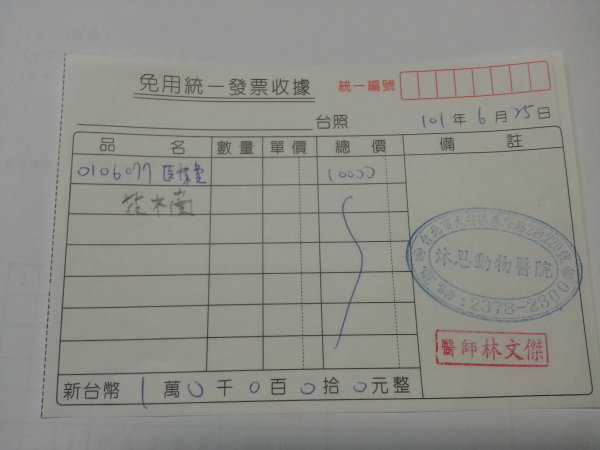 免用統一發票收據
統一編號
台照
101年6月25日
品名 數量 單價 總價 備註
0106077 醫療費 10000
花木蘭
沐恩動物醫院
電話:2378-2300
醫師林文傑
新台幣 1萬0千0百0拾0元整